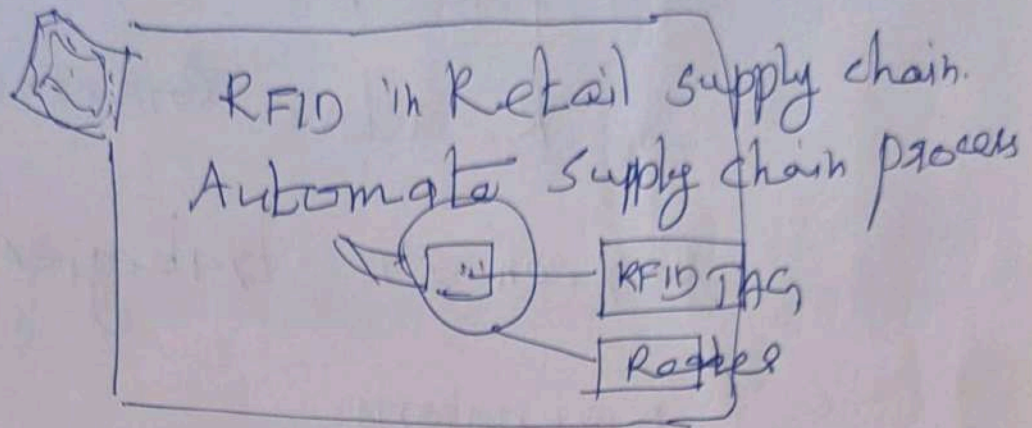 RFID in Retail supply chain.
Automate supply chain process
RFID TAG